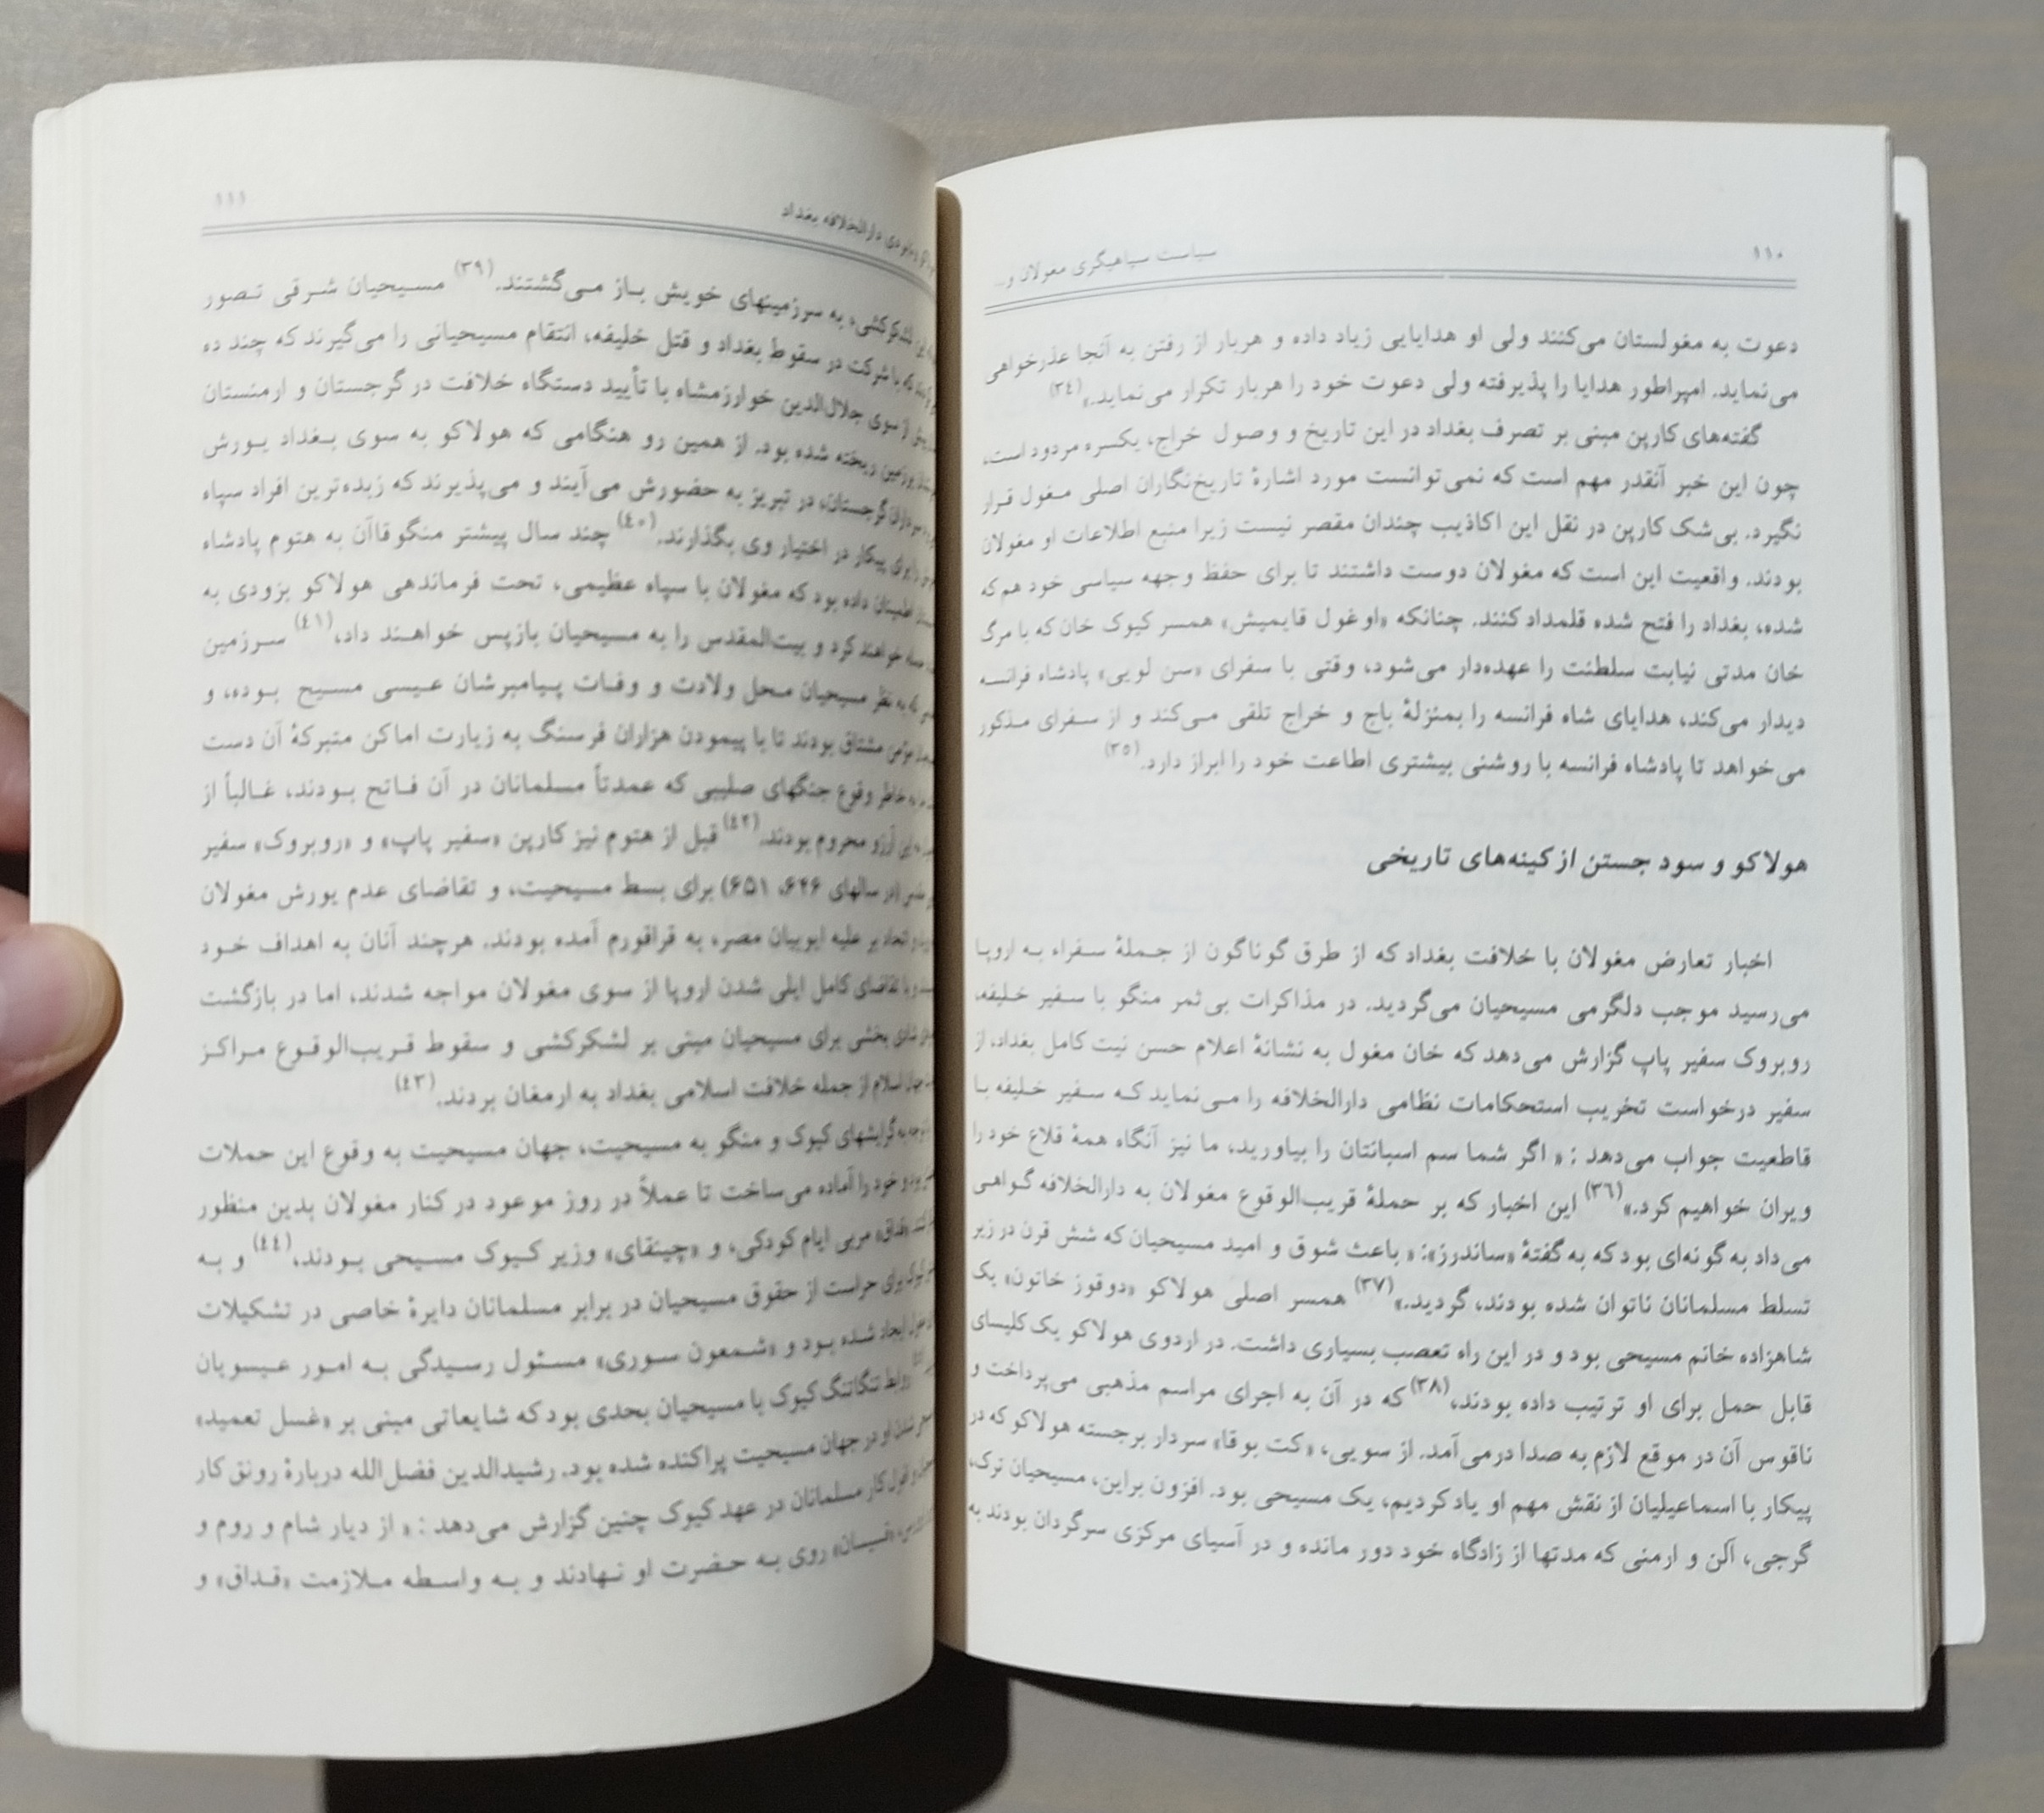 ۱۱۰
سیاست سپاهیگری مغولان و...
دعوت به مغولستان می‌کنند ولی او هدایایی زیاد داده و هربار از رفتن به آنجا عذرخواهی
می‌نماید. امپراطور هدایا را پذیرفته ولی دعوت خود را هربار تکرار می‌نماید.»(۳٤)
گفته‌های کارپن مبنی بر تصرف بغداد در این تاریخ و وصول خراج، یکسره مردود است،
چون این خبر آنقدر مهم است که نمی‌توانست مورد اشارهٔ تاریخ‌نگاران اصلی مغول قرار
نگیرد. بی‌شک کارپن در نقل این اکاذیب چندان مقصر نیست زیرا منبع اطلاعات او مغولان
بودند. واقعیت این است که مغولان دوست داشتند تا برای حفظ وجهه سیاسی خود هم که
شده، بغداد را فتح شده قلمداد کنند. چنانکه «اوغول قایمیش» همسر کیوک خان که با مرگ
خان مدتی نیابت سلطنت را عهده‌دار می‌شود، وقتی با سفرای «سن لویی» پادشاه فرانسه
دیدار می‌کند، هدایای شاه فرانسه را بمنزلهٔ باج و خراج تلقی می‌کند و از سفرای مذکور
می‌خواهد تا پادشاه فرانسه با روشنی بیشتری اطاعت خود را ابراز دارد.(۳۵)
هولاکو و سود جستن از کینه‌های تاریخی
اخبار تعارض مغولان با خلافت بغداد که از طرق گوناگون از جملهٔ سفراء به اروپا
می‌رسید موجب دلگرمی مسیحیان می‌گردید. در مذاکرات بی‌ثمر منگو با سفیر خلیفه،
روبروک سفیر پاپ گزارش می‌دهد که خان مغول به نشانهٔ اعلام حسن نیت کامل بغداد، از
سفیر درخواست تخریب استحکامات نظامی دارالخلافه را می‌نماید که سفیر خلیفه با
قاطعیت جواب می‌دهد : « اگر شما سم اسبانتان را بیاورید، ما نیز آنگاه همهٔ قلاع خود را
ویران خواهیم کرد.»(۳٦) این اخبار که بر حملهٔ قریب‌الوقوع مغولان به دارالخلافه گواهی
می‌داد به گونه‌ای بود که به گفتهٔ «ساندرز»: « باعث شوق و امید مسیحیان که شش قرن در زیر
تسلط مسلمانان ناتوان شده بودند، گردید.»(۳۷) همسر اصلی هولاکو «دوقوز خاتون» یک
شاهزاده خانم مسیحی بود و در این راه تعصب بسیاری داشت. در اردوی هولاکو یک کلیسای
قابل حمل برای او ترتیب داده بودند،(۳۸) که در آن به اجرای مراسم مذهبی می‌پرداخت و
ناقوس آن در موقع لازم به صدا درمی‌آمد. از سویی، «کت بوقا» سردار برجسته هولاکو که در
پیکار با اسماعیلیان از نقش مهم او یاد کردیم، یک مسیحی بود. افزون براین، مسیحیان ترک،
گرجی، آلن و ارمنی که مدتها از زادگاه خود دور مانده و در آسیای مرکزی سرگردان بودند به
نابودی دارالخلافه بغداد
۱۱۱
لشکرکشی، به سرزمینهای خویش باز می‌گشتند.(۳۹) مسیحیان شرقی تصور
با شرکت در سقوط بغداد و قتل خلیفه، انتقام مسیحیانی را می‌گیرند که چند ده
از سوی جلال‌الدین خوارزمشاه با تأیید دستگاه خلافت در گرجستان و ارمنستان
ریخته شده بود. از همین رو هنگامی که هولاکو به سوی بغداد یورش
گرجستان، در تبریز به حضورش می‌آیند و می‌پذیرند که زبده‌ترین افراد سپاه
برای پیکار در اختیار وی بگذارند.(٤۰) چند سال پیشتر منگوقاآن به هتوم پادشاه
اطمینان داده بود که مغولان با سپاه عظیمی، تحت فرماندهی هولاکو بزودی به
خواهند کرد و بیت‌المقدس را به مسیحیان بازپس خواهند داد،(٤۱) سرزمین
که به نظر مسیحیان محل ولادت و وفات پیامبرشان عیسی مسیح بوده، و
مشتاق بودند تا با پیمودن هزاران فرسنگ به زیارت اماکن متبرکهٔ آن دست
به خاطر وقوع جنگهای صلیبی که عمدتاً مسلمانان در آن فاتح بودند، غالباً از
آرزو محروم بودند.(٤۲) قبل از هتوم نیز کارپن «سفیر پاپ» و «روبروک» سفیر
(در سالهای ۶۴۶، ۶۵۱) برای بسط مسیحیت، و تقاضای عدم یورش مغولان
علیه ایوبیان مصر، به قراقورم آمده بودند. هرچند آنان به اهداف خود
با تقاضای کامل ایلی شدن اروپا از سوی مغولان مواجه شدند، اما در بازگشت
بخشی برای مسیحیان مبنی بر لشکرکشی و سقوط قریب‌الوقوع مراکز
جهان اسلام از جمله خلافت اسلامی بغداد به ارمغان بردند.(٤۳)
گرایشهای کیوک و منگو به مسیحیت، جهان مسیحیت به وقوع این حملات
خود را آماده می‌ساخت تا عملاً در روز موعود در کنار مغولان بدین منظور
«قداق» مربی ایام کودکی، و «چینقای» وزیر کیوک مسیحی بودند،(٤٤) و به
برای حراست از حقوق مسیحیان در برابر مسلمانان دایرهٔ خاصی در تشکیلات
ایجاد شده بود و «شمعون سوری» مسئول رسیدگی به امور عیسویان
روابط تنگاتنگ کیوک با مسیحیان بحدی بود که شایعاتی مبنی بر «غسل تعمید»
او در جهان مسیحیت پراکنده شده بود. رشیدالدین فضل‌الله دربارهٔ رونق کار
و افول کار مسلمانان در عهد کیوک چنین گزارش می‌دهد : « از دیار شام و روم و
روی به حضرت او نهادند و به واسطه ملازمت «قداق» و